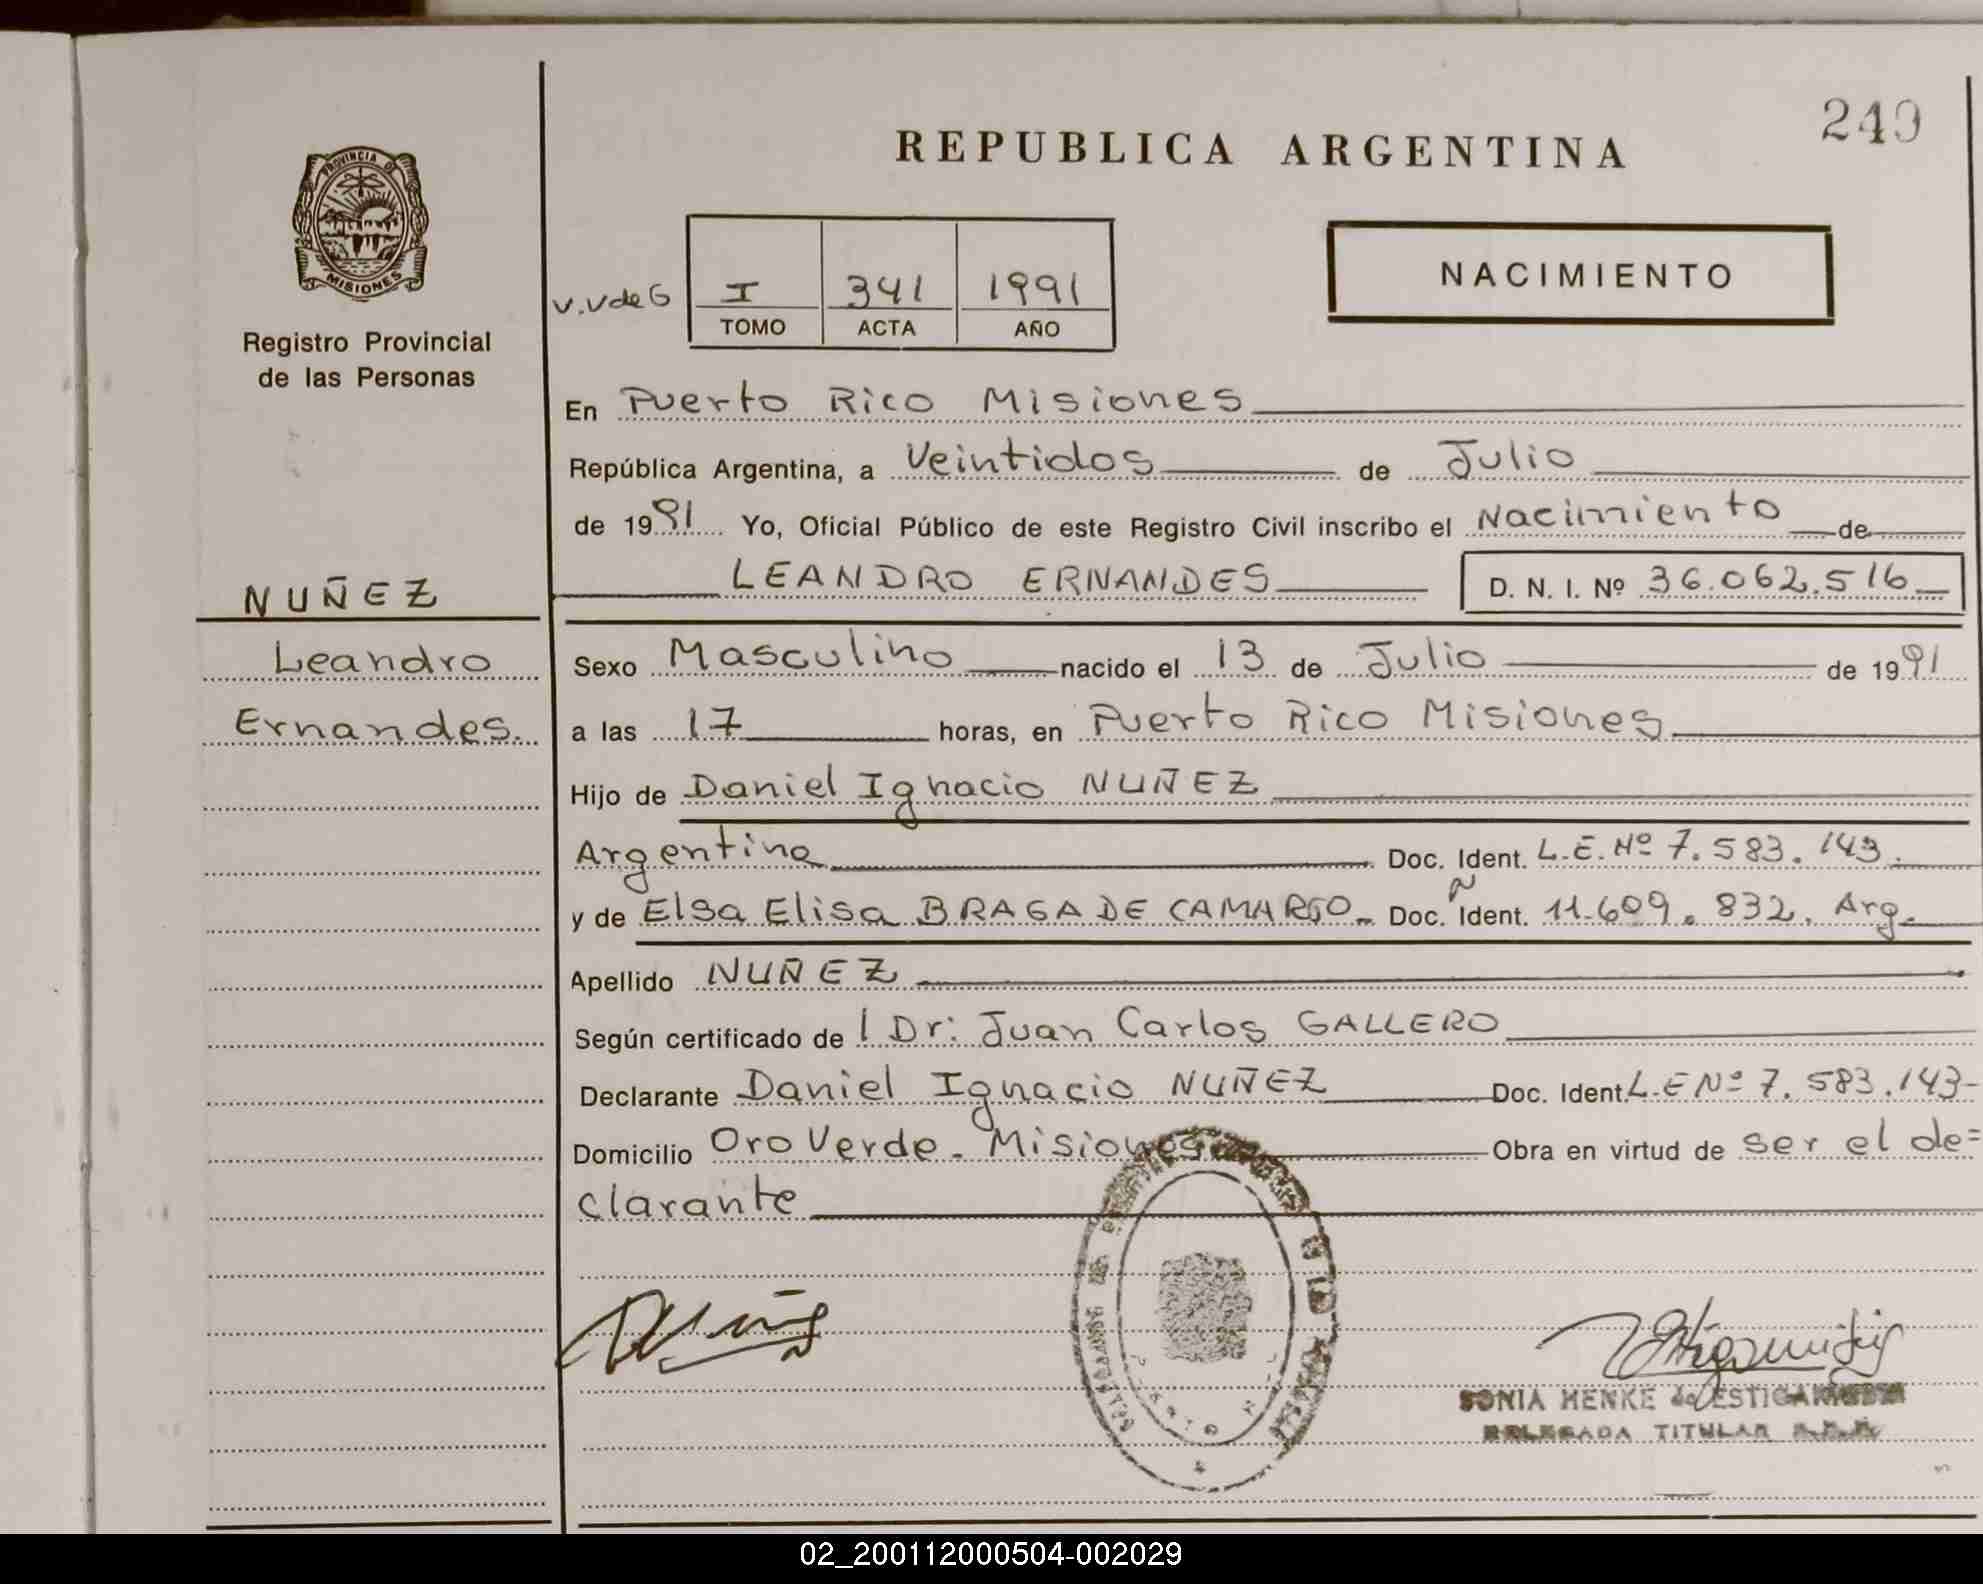 240
REPUBLICA ARGENTINA
PROVINCIA DE
MISIONES
Registro Provincial
de las Personas
V.V de G
I 341 1991
TOMO ACTA AÑO
NACIMIENTO
En Puerto Rico Misiones
República Argentina, a Veintidos de Julio
de 1991 Yo, Oficial Público de este Registro Civil inscribo el Nacimiento de
LEANDRO ERNANDES D. N. I. Nº 36.062.516
NUÑEZ
Leandro
Ernandes.
Sexo Masculino nacido el 13 de Julio de 1991
a las 17 horas, en Puerto Rico Misiones
Hijo de Daniel Ignacio NUÑEZ
Argentina Doc. Ident. L.E. Nº 7.583.143.
y de Elsa Elisa BRAGA DE CAMARGO. Doc. Ident. 11.609.832. Arg.
Apellido NUÑEZ
Según certificado de l Dr: Juan Carlos GALLERO
Declarante Daniel Ignacio NUÑEZ Doc. Ident L.E Nº 7.583.143-
Domicilio Oro Verde. Misiones Obra en virtud de ser el de=
clarante
SONIA MENKE de
DELEGADA TITULAR
02_200112000504-002029